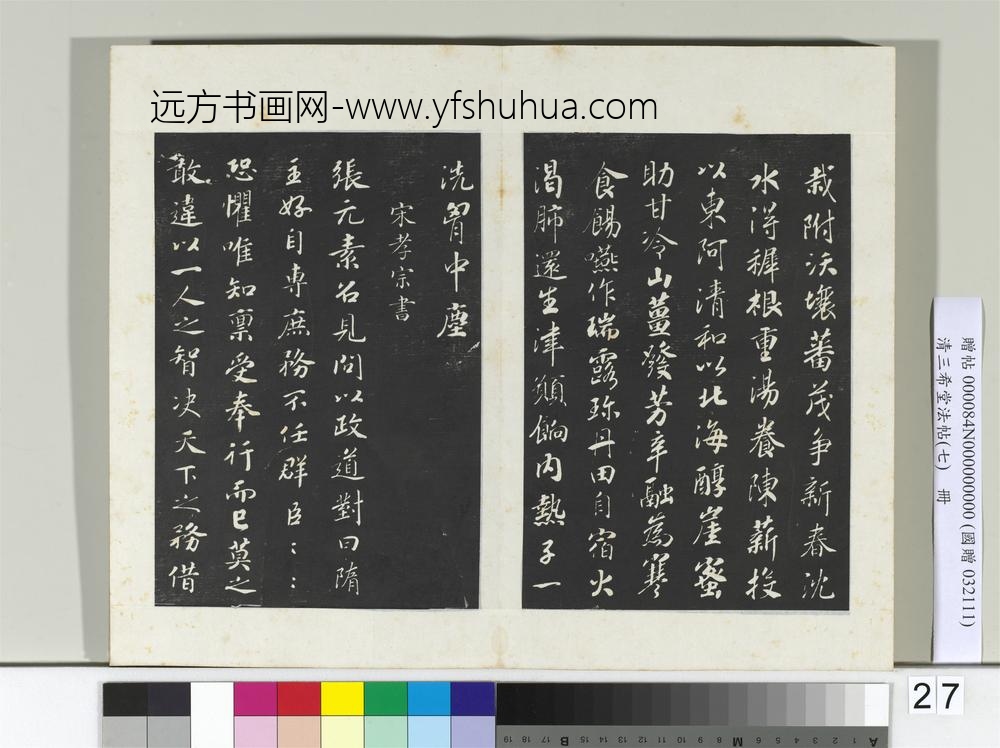 远方书画网-www.yfshuhua.com
栽附沃壤蕃茂争新春沈
水得穉根重湯養陳薪投
以東阿清和以北海醇崖蜜
助甘冷山薑發芳辛融為寒
食餳嚥作瑞露珎丹田自宿火
渴肺還生津願餉内熱子一
洗胷中塵
宋孝宗書
張元素召見問以政道對曰隋
主好自專庶務不任群臣〻〻
恐懼唯知禀受奉行而已莫之
敢違以一人之智决天下之務借
贈帖 000084N000000000 (國贈 032111)
清三希堂法帖(七) 冊
27